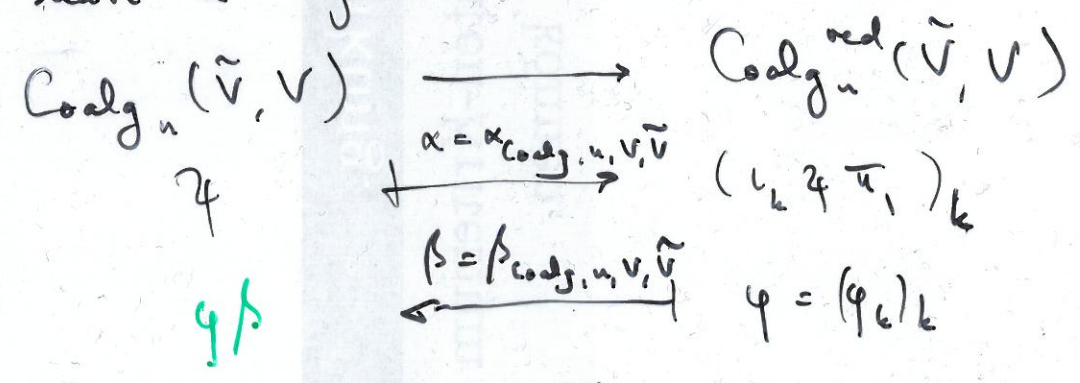 Coalg_n (Ṽ, V) ⟶ Coalg_n^red (Ṽ, V)
α = α_{Coalg, n, V, Ṽ}
ψ ⟼ (ι_k ψ π_1)_k
β = β_{Coalg, n, V, Ṽ}
φβ ⟻ φ = (φ_k)_k